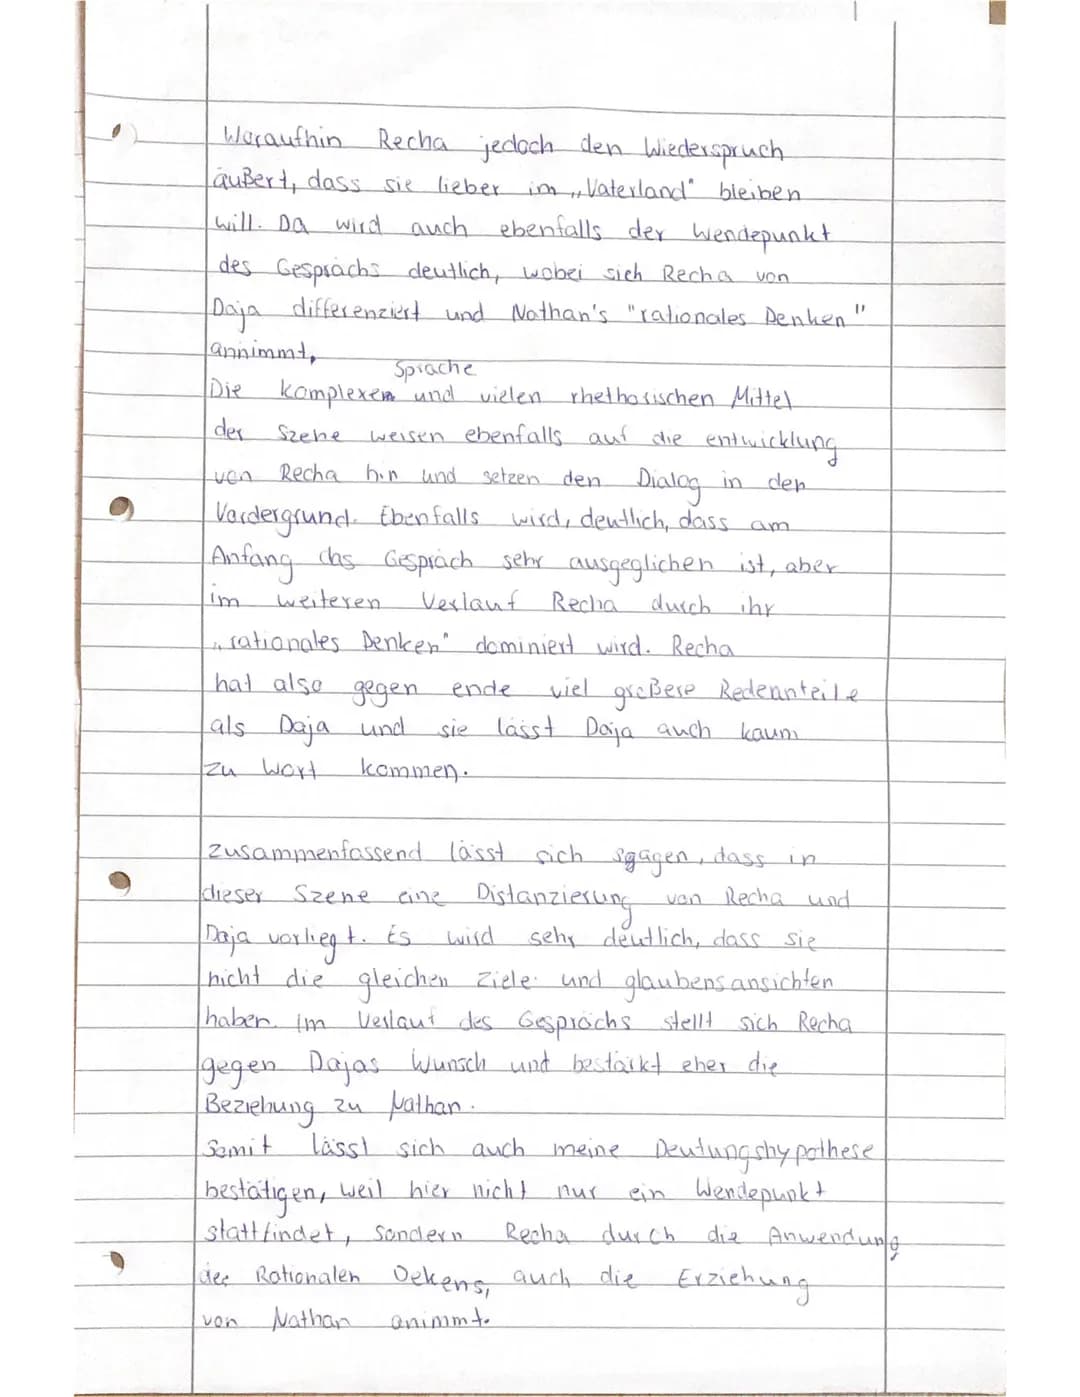 Woraufhin Recha jedoch den Wiederspruch
äußert, dass sie lieber im „Vaterland" bleiben
will. Da wird auch ebenfalls der Wendepunkt
des Gesprächs deutlich, wobei sich Recha von
Daja differenziert und Nathan's "rationales Denken"
annimmt,
Sprache
Die komplexen und vielen rhethorischen Mittel
der Szene weisen ebenfalls auf die entwicklung
von Recha hin und setzen den Dialog in den
Vordergrund. Ebenfalls wird, deutlich, dass am
Anfang das Gespräch sehr ausgeglichen ist, aber
im weiteren Verlauf Recha durch ihr
„rationales Denken" dominiert wird. Recha
hat also gegen ende viel größere Redeanteile
als Daja und sie lässt Daja auch kaum
zu Wort kommen.
zusammenfassend lässt sich sagen, dass in
dieser Szene eine Distanzierung von Recha und
Daja vorliegt. Es wird sehr deutlich, dass sie
nicht die gleichen Ziele und glaubensansichten
haben. Im Verlauf des Gesprächs stellt sich Recha
gegen Dajas Wunsch und bestärkt eher die
Beziehung zu Nathan.
Somit lässt sich auch meine Deutungshypothese
bestätigen, weil hier nicht nur ein Wendepunkt
stattfindet, sondern Recha durch die Anwendung
des Rationalen Dekens, auch die Erziehung
von Nathan animmt.